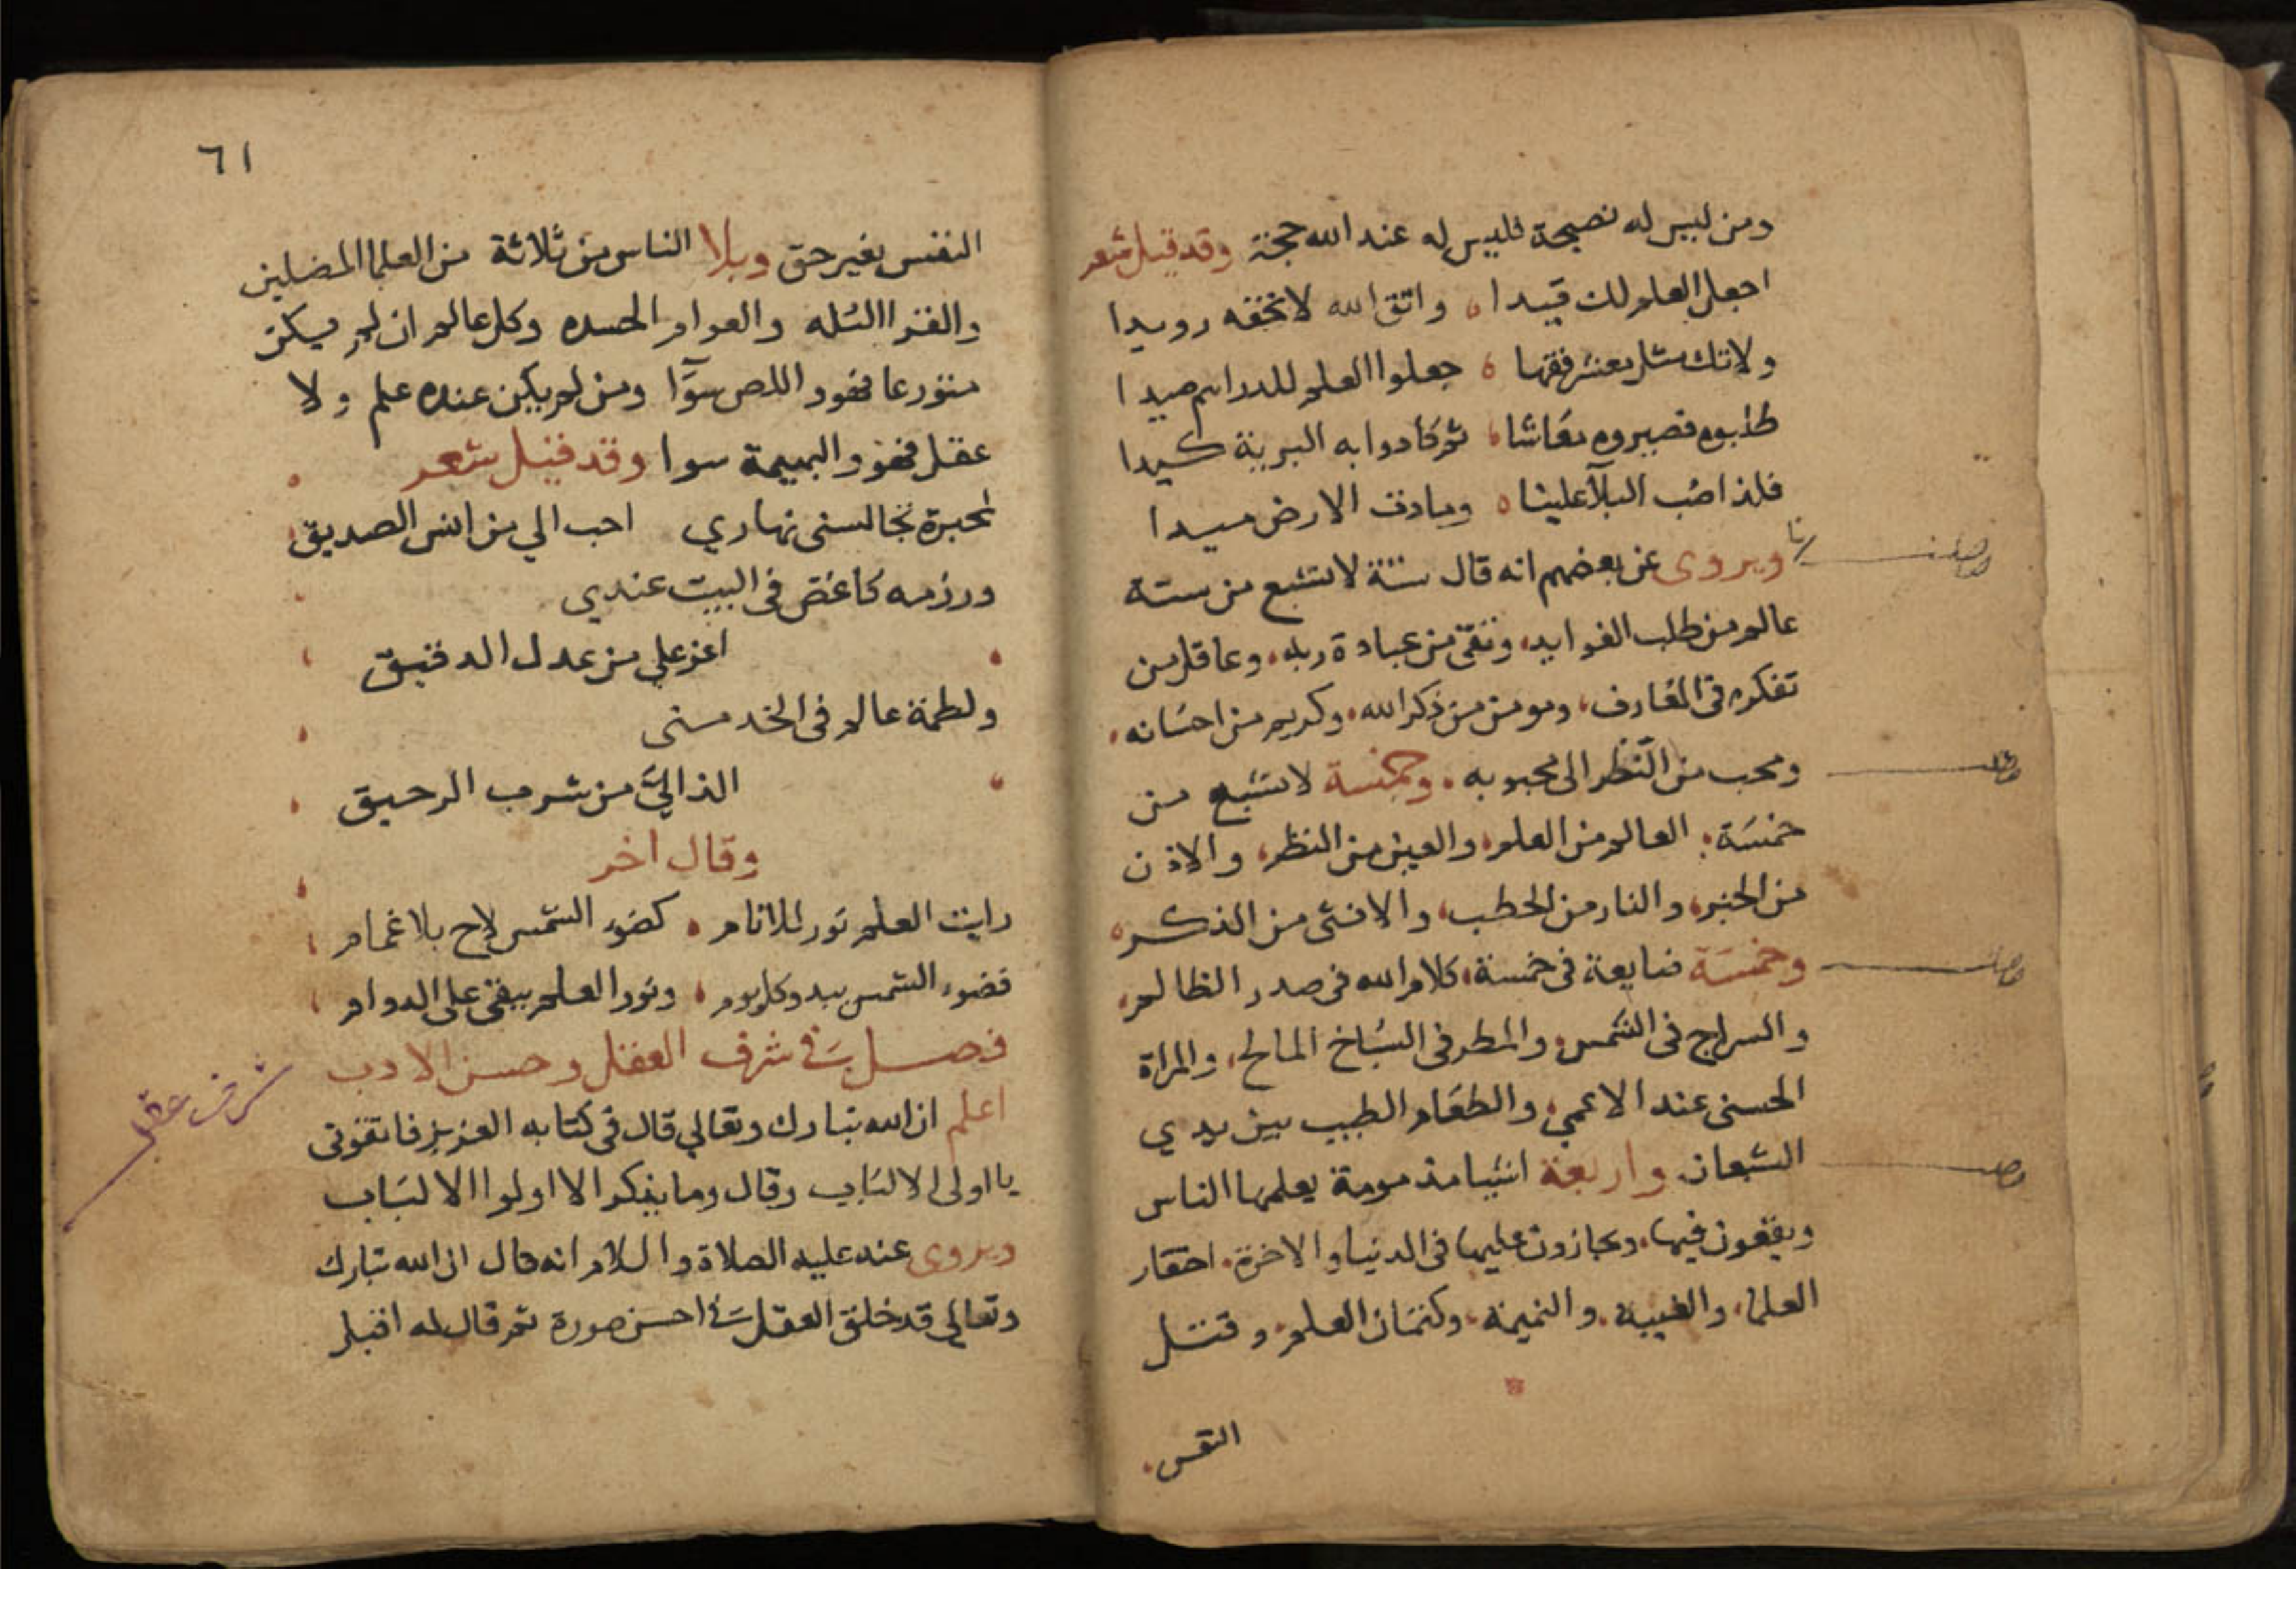 ومن ليس له نصيحة فليس له عند الله حجة وقد قيل شعر
اجعل العلم لك قيدا واتق الله لا تخفه رويدا
ولا تك مثل معشر فقها جعلوا العلم للدراهم صيدا
طلبوه فصيروه معاشا ثم كادوا به البرية كيدا
فلذا صب البلآ علينا ومادت الارض ميدا
ويروى عن بعضهم انه قال ستة لا تشبع من ستة
عالم من طلب الفوايد، وتقى من عبادة ربه، وعاقل من
تفكره فى المعارف، ومومن من ذكر الله، وكريم من احسانه،
ومحب من النظر الى محبوبه، وخمسة لا تشبع من
خمسة: العالم من العلم، والعين من النظر، والاذن
من الخبر، والنار من الحطب، والانثى من الذكر
وخمسة ضايعة فى خمسة، كلام الله فى صدر الظالم،
والسراج فى الشمس، والمطر فى السباخ المالح، والمراة
الحسنى عند الاعمي، والطعام الطيب بين يدي
الشبعان واربعة اشيا مذمومة يعلمها الناس
ويقعون فيها، ويجازون عليها فى الدنيا والاخرة، احتقار
العلما، والغيبة، والنميمة، وكتمان العلم، وقتل
النفس
٦١
النفس بغير حق وبلا الناس من ثلاثة من العلما المضلين
والفقرا البله والعوام الحسده وكل عالم ان لم يكن
متورعا فهو واللص سوآا ومن لم يكن عنده علم ولا
عقل فهو والبهيمة سوا وقد قيل شعر
لمحبرة تجالسنى نهاري احب الي من انس الصديق
ورزمه كاغض فى البيت عندي
اعز علي من عدل الدقيق
ولطمة عالم فى الخد منى
الذ اليّ من شرب الرحيق
وقال اخر
رايت العلم نور للانام كضوء الشمس لاح بلا غمام
فضوء الشمس يبدو كل يوم ونور العلم يبقى على الدوام
فصل فى شرف العقل وحسن الادب
شرف عقل
اعلم ان الله تبارك وتعالي قال فى كتابه العزيز فاتقونى
يا اولى الالباب وقال وما يذكر الا اولوا الالباب
ويروى عنه عليه الصلاة والسلام انه قال ان الله تبارك
وتعالى قد خلق العقل فى احسن صورة ثم قال له اقبل